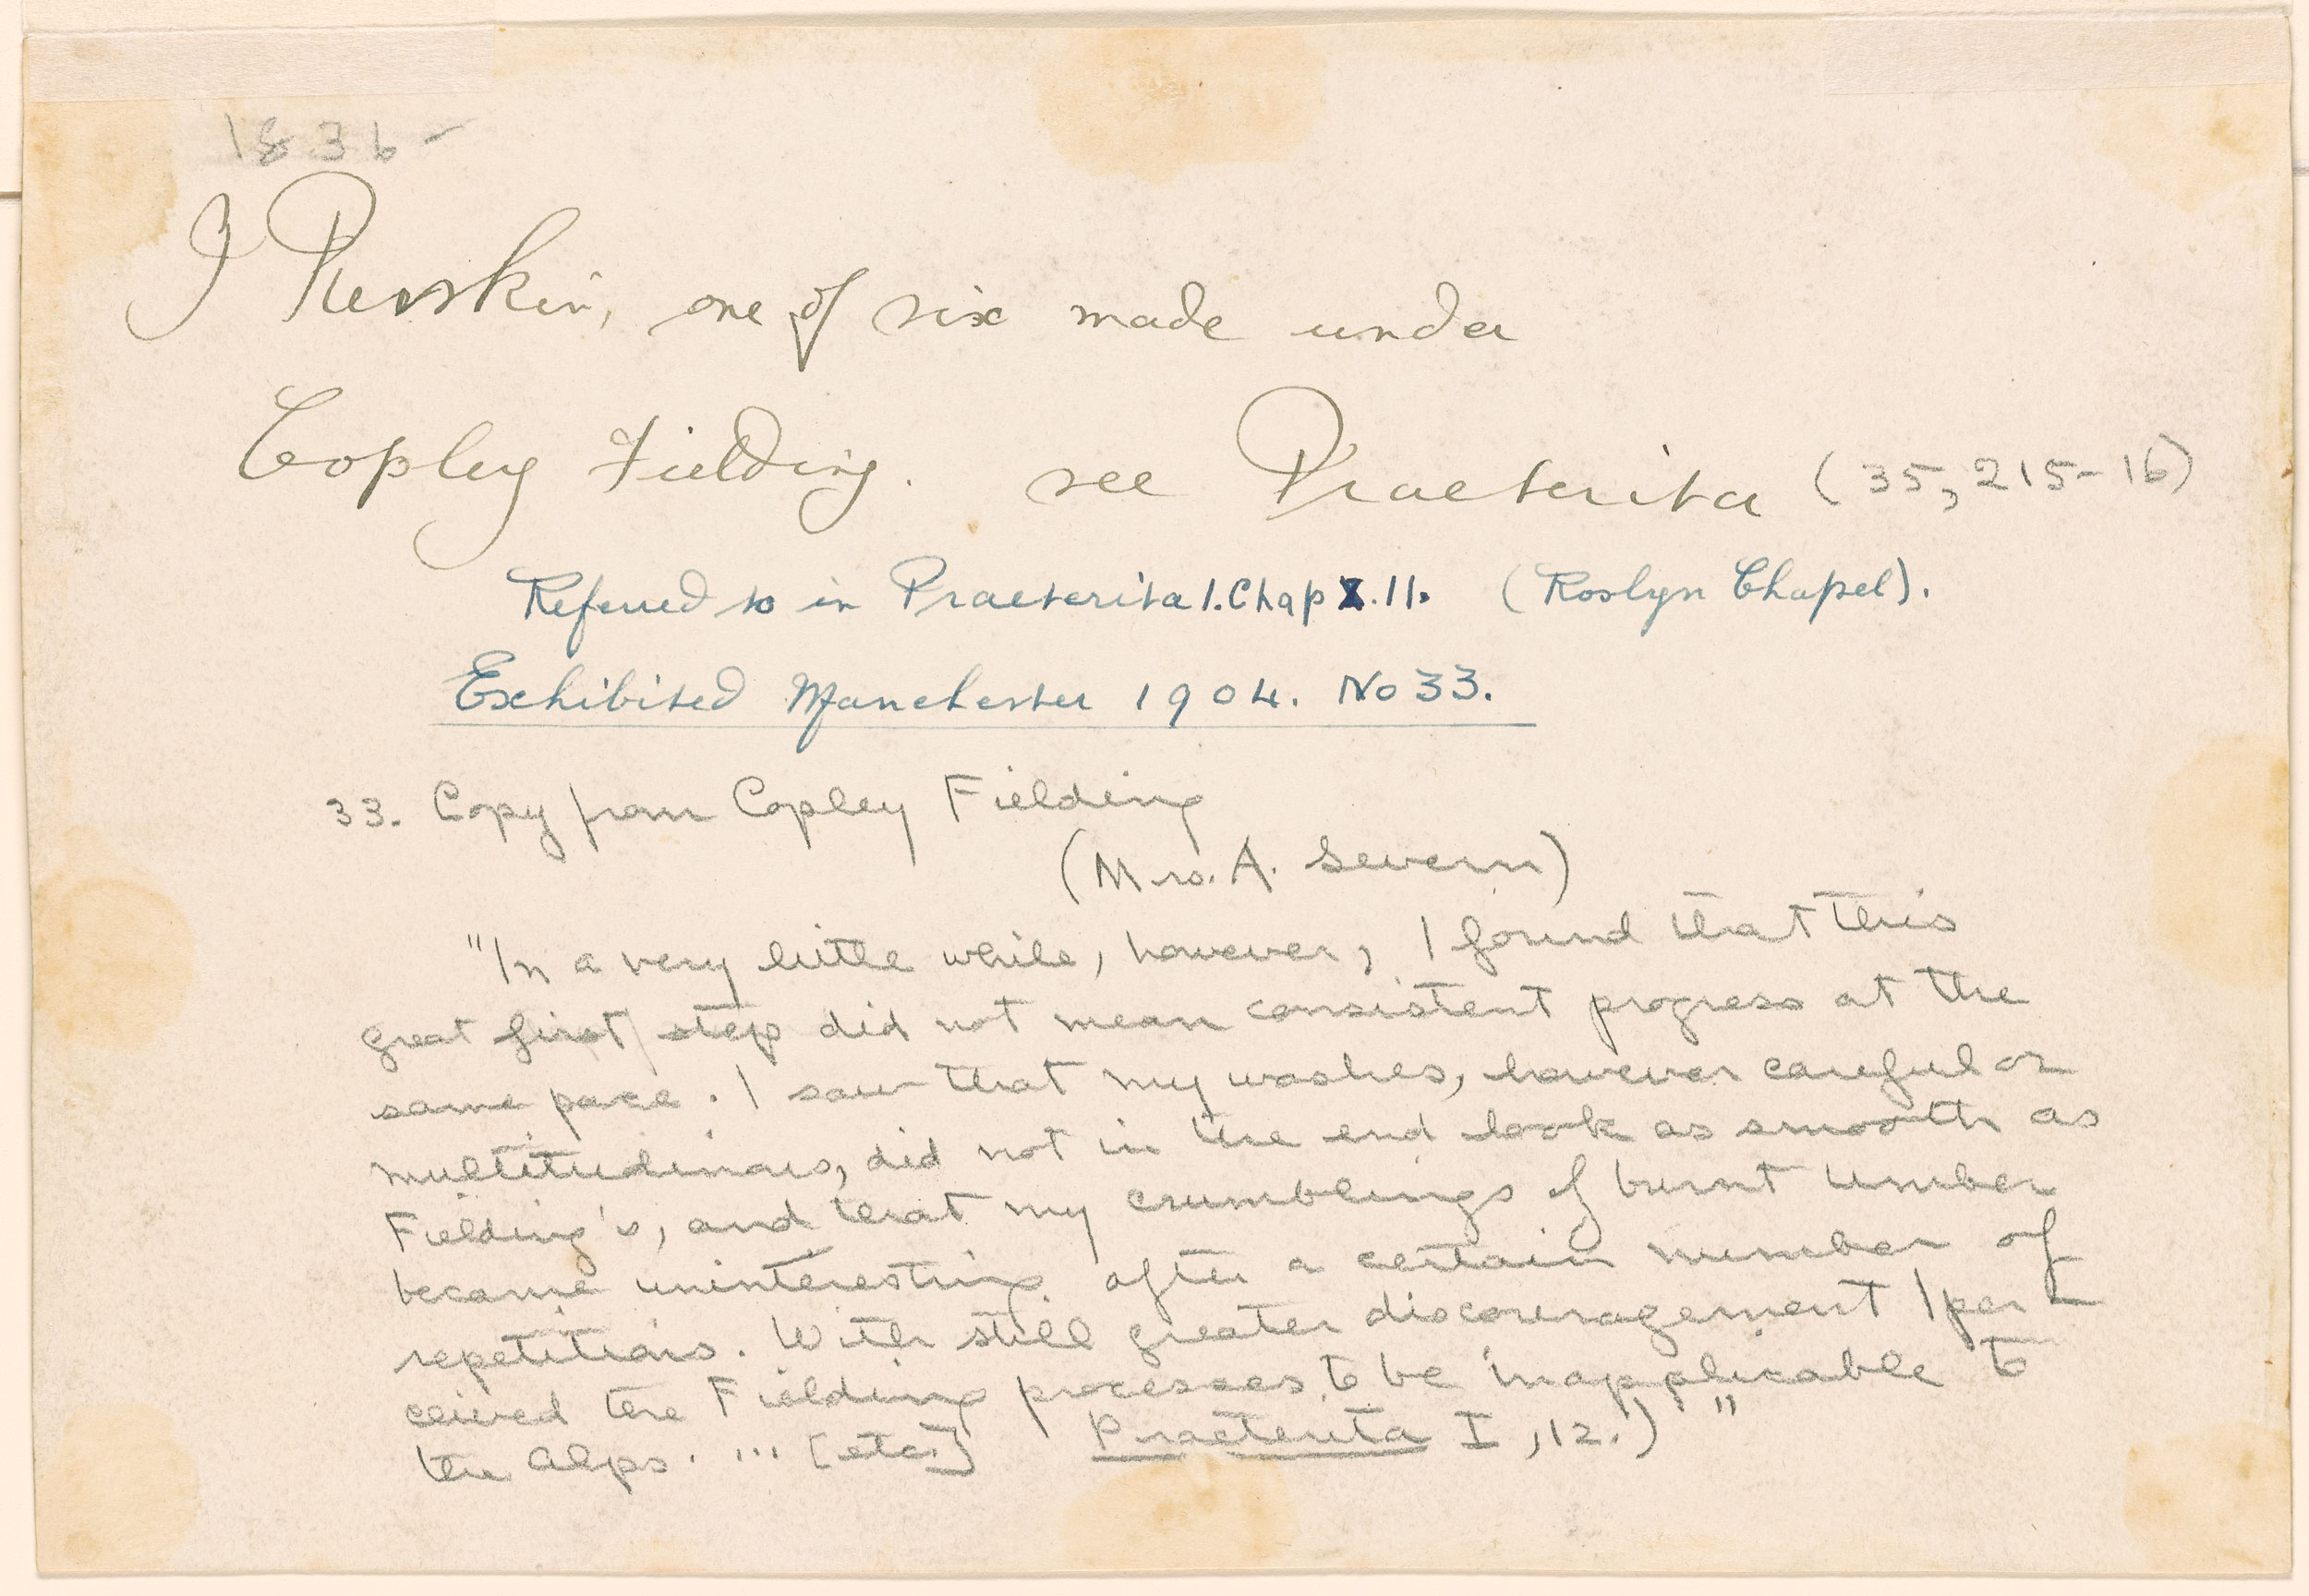 1836-
J Ruskin, one of six made under
Copley Fielding. see Praeterita (35, 215-16)
Referred to in Praeterita 1. Chap X. 11. (Roslyn Chapel).
Exhibited Manchester 1904. No 33.
33. Copy from Copley Fielding
(Mrs. A. Severn)
"In a very little while, however, I found that this
great first step did not mean consistent progress at the
same pace. I saw that my washes, however careful or
multitudinous, did not in the end look as smooth as
Fielding's, and that my crumblings of burnt umber
became uninteresting after a certain number of
repetitions. With still greater discouragement I per-
ceived the Fielding processes to be inapplicable to
the Alps. ... [etc.] Praeterita I, 12.) "